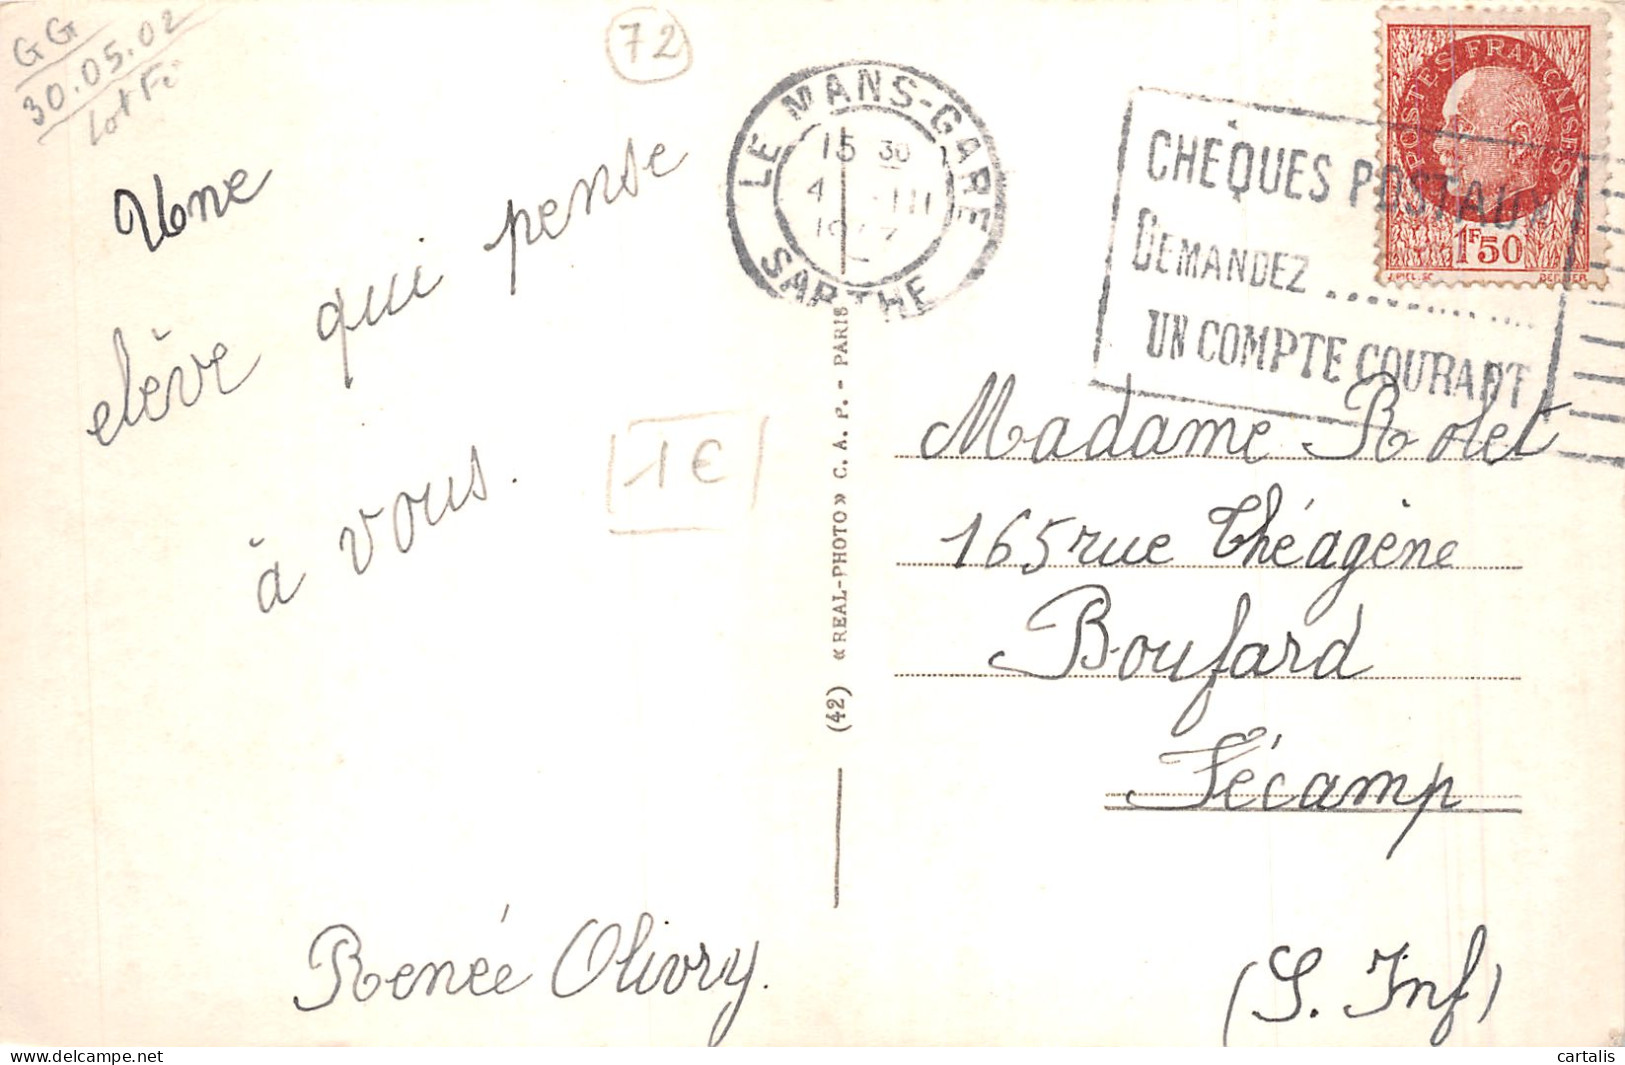 GG
30.05.02
72
Une
elève qui pense
à vous.
1€
Renée Olivry.
(42) « REAL-PHOTO » C. A. P. - PARIS
LE MANS-GARE
15 30
4 -III
SARTHE
POSTES FRANÇAISES
1F50
CHEQUES POSTAUX
DEMANDEZ ............
UN COMPTE COURANT
Madame Rolet
165 rue Théagène
Boufard
Fécamp
(S. Inf)
delcampe.net
cartalis